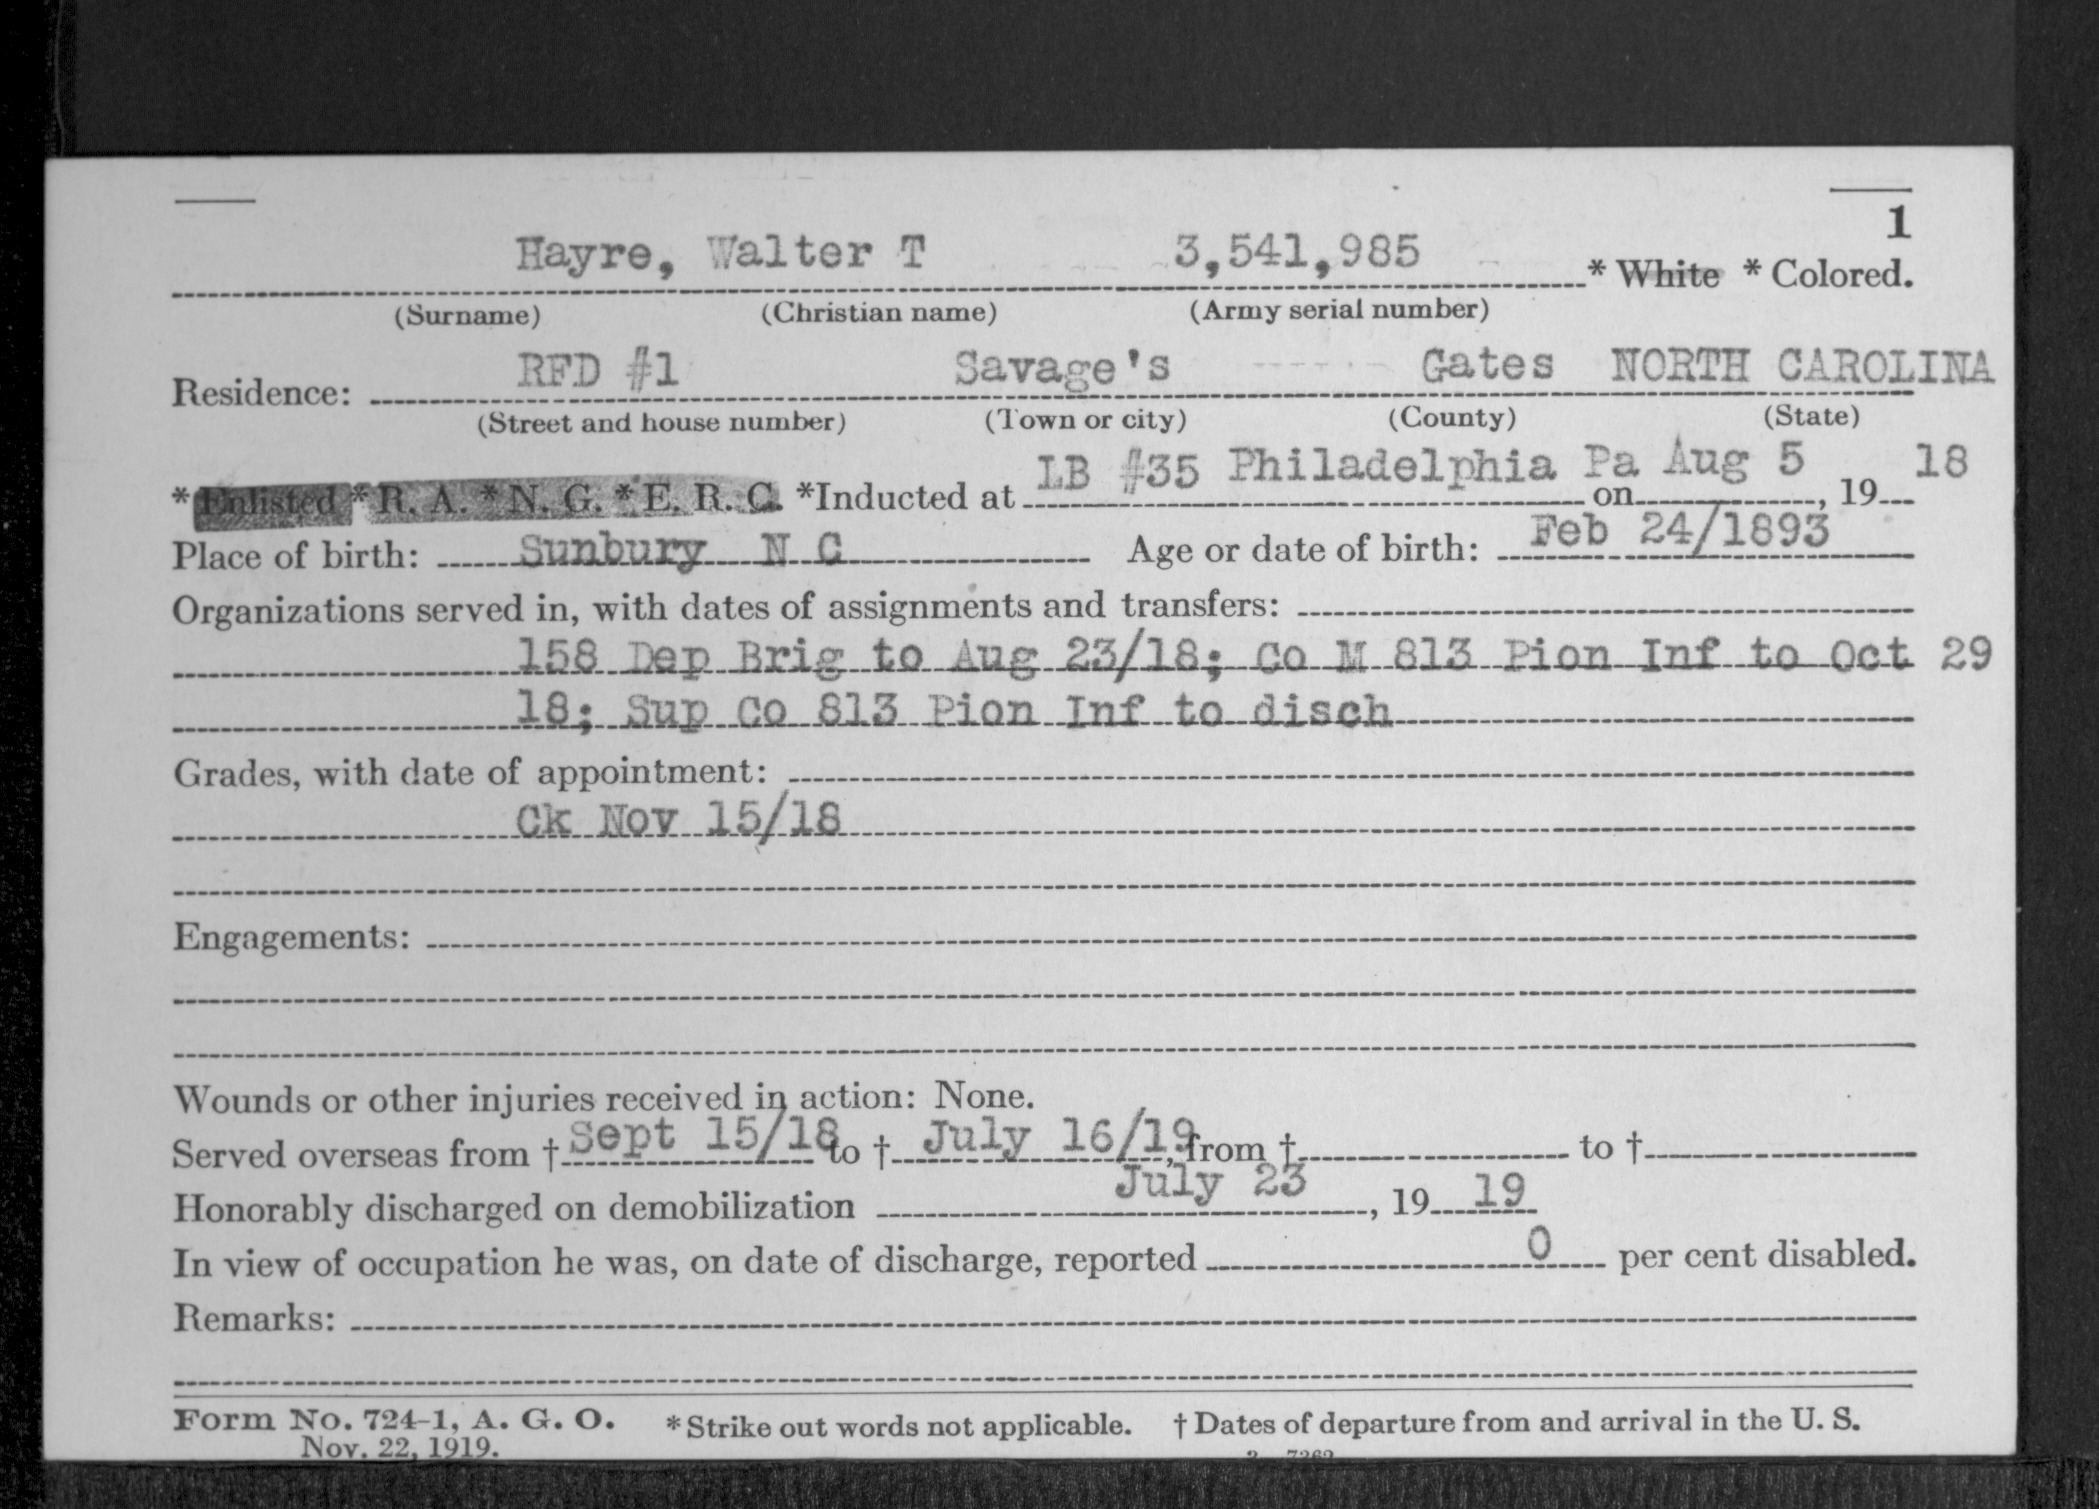 1
Hayre, Walter T 3,541,985 * White * Colored.
(Surname) (Christian name) (Army serial number)
Residence: RFD #1 Savage's Gates NORTH CAROLINA
(Street and house number) (Town or city) (County) (State)
*Enlisted *R. A. *N. G. *E. R. C. *Inducted at LB #35 Philadelphia Pa on Aug 5, 19 18
Place of birth: Sunbury N C Age or date of birth: Feb 24/1893
Organizations served in, with dates of assignments and transfers:
158 Dep Brig to Aug 23/18; Co M 813 Pion Inf to Oct 29
18; Sup Co 813 Pion Inf to disch
Grades, with date of appointment:
Ck Nov 15/18
Engagements:
Wounds or other injuries received in action: None.
Served overseas from † Sept 15/18 to † July 16/19, from † to †
Honorably discharged on demobilization July 23, 19 19
In view of occupation he was, on date of discharge, reported 0 per cent disabled.
Remarks:
Form No. 724-1, A. G. O. * Strike out words not applicable. † Dates of departure from and arrival in the U. S.
Nov. 22, 1919.